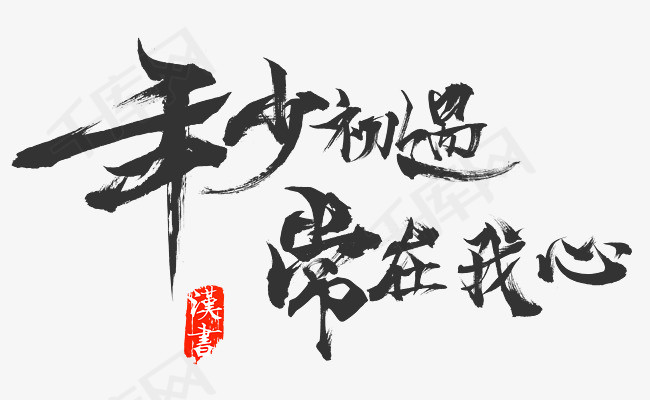 年少初遇
常在我心
漢書
千库网